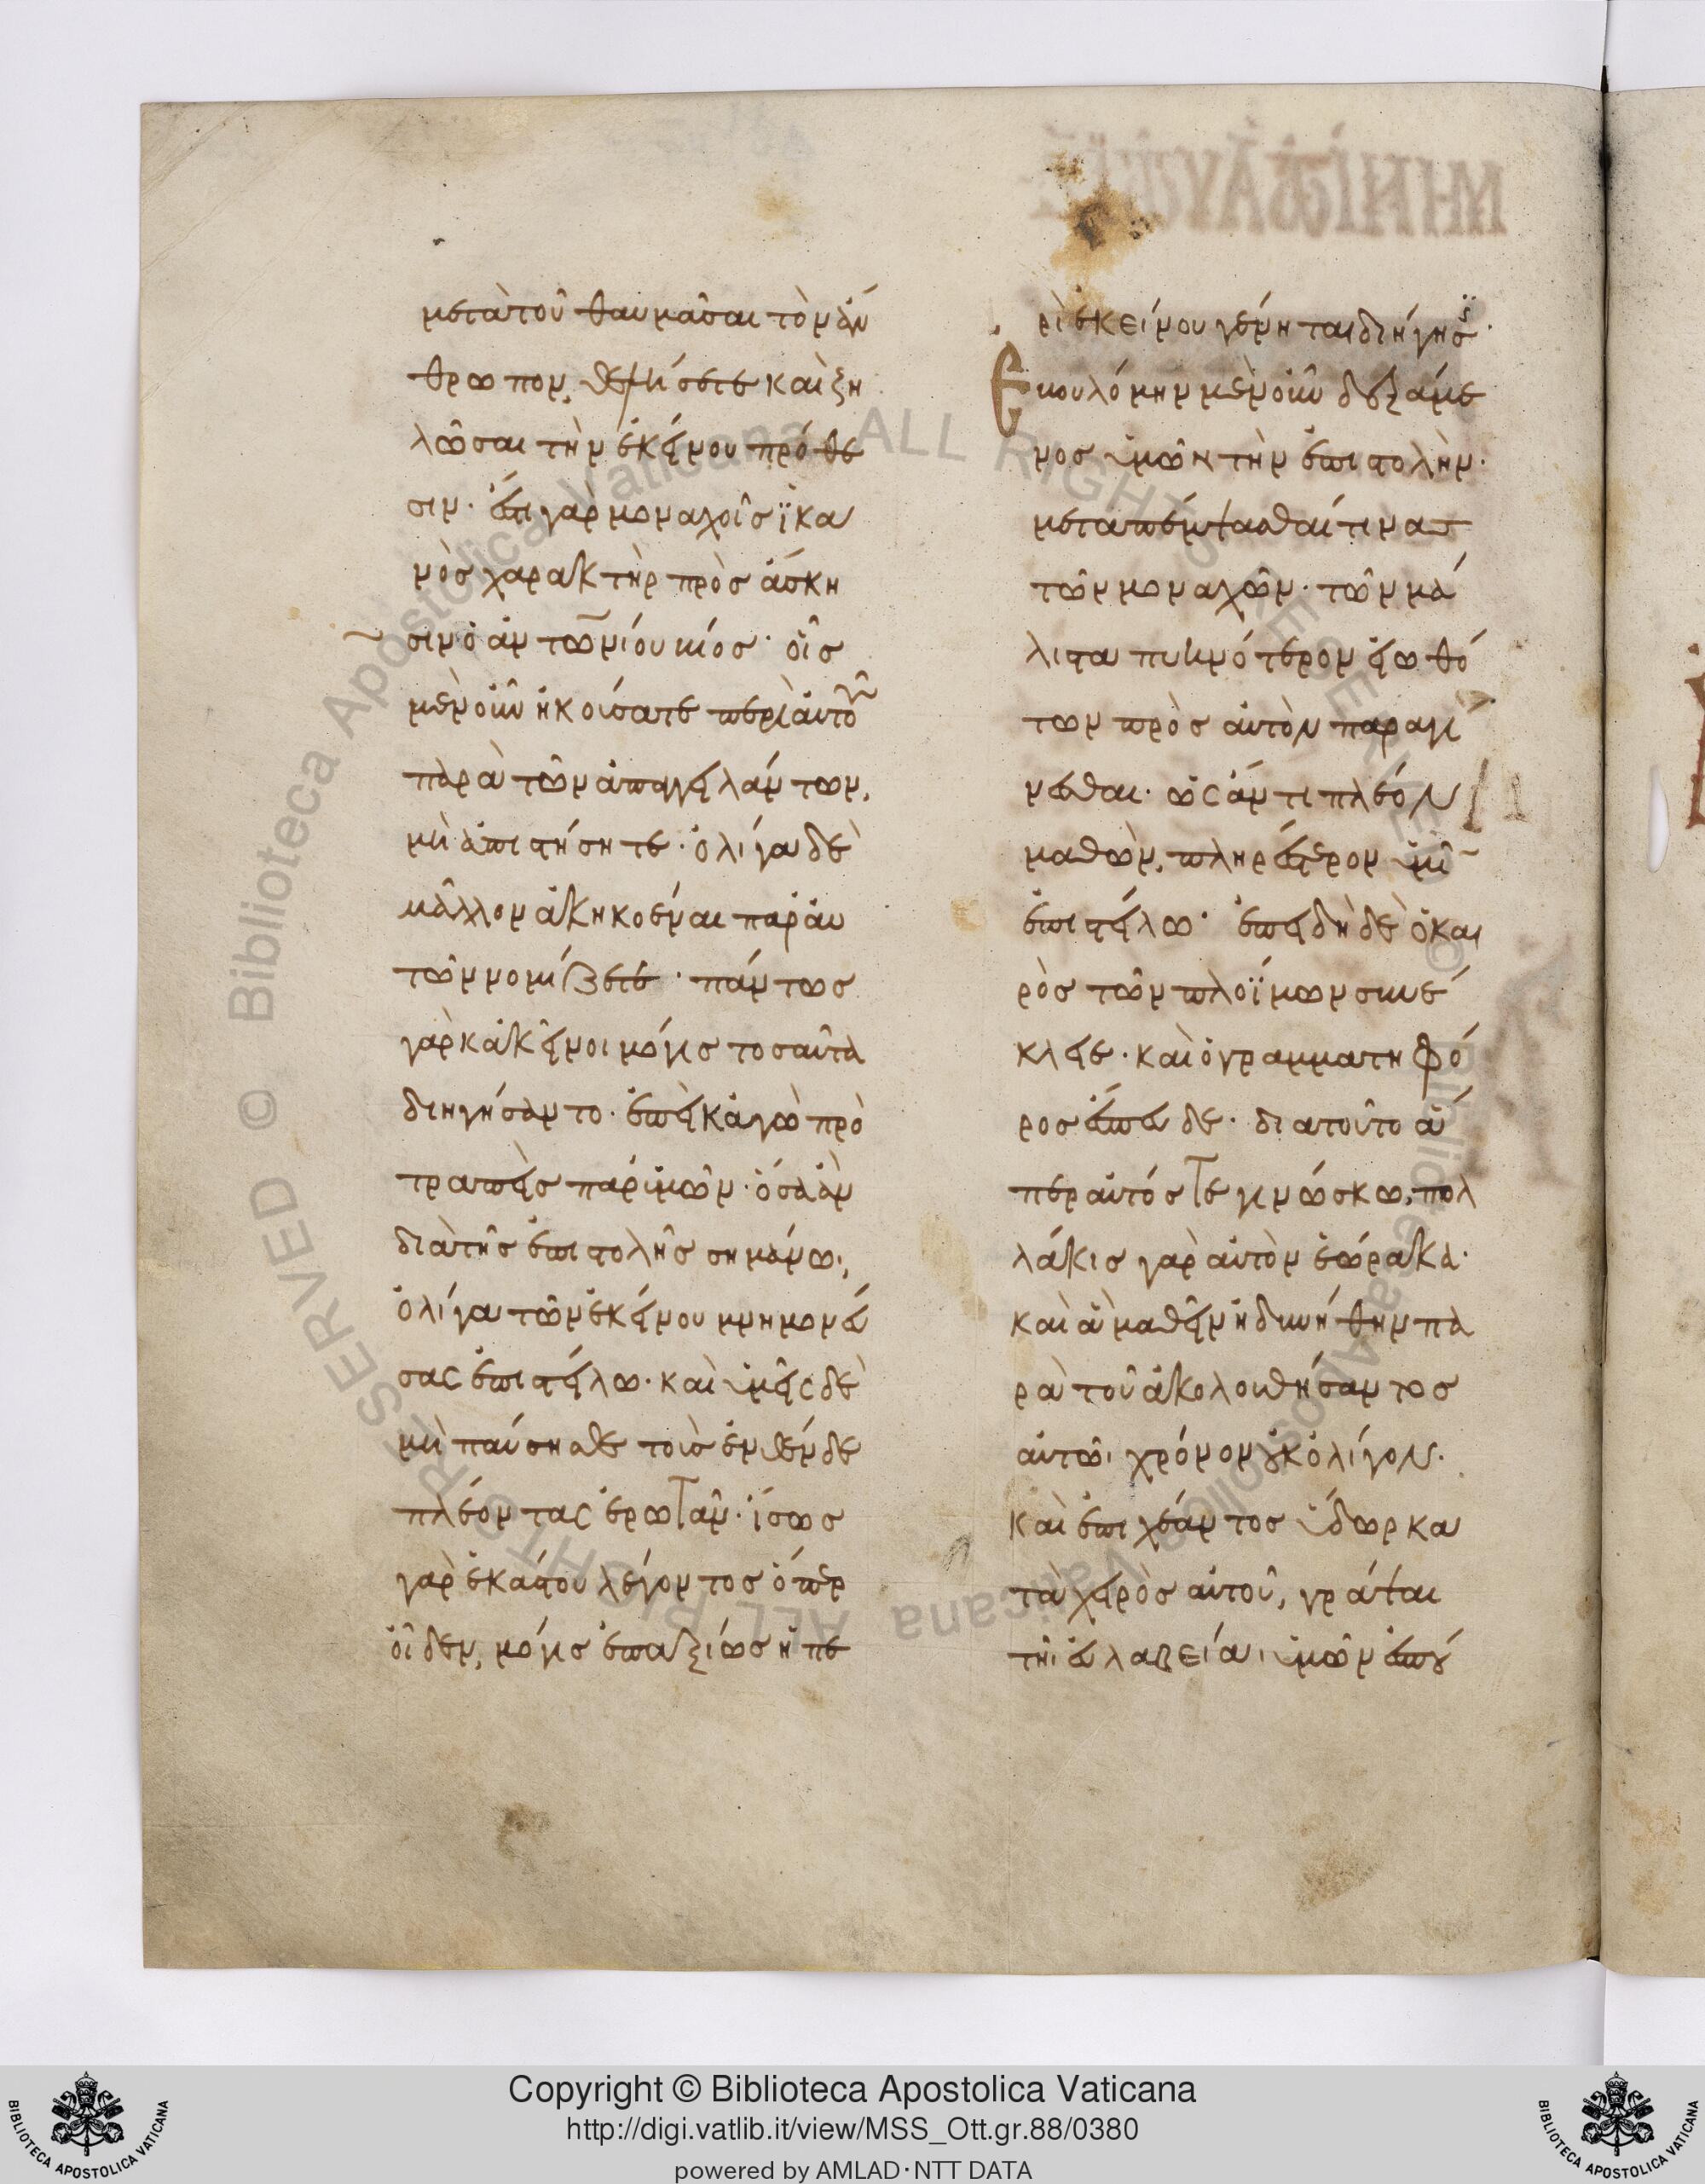 μετὰ τοῦ θαυμᾶσαι τὸν ἄν
θρωπον, θελήσετε καὶ ζη
λῶσαι τὴν ἐκείνου πρόθε
σιν· ἔστι γὰρ μοναχοῖς ϊκα
νὸς χαρακτὴρ πρὸς ἄσκη
σιν ὁ ἀντωνίου βίος· οἷς
μὲν οὖν ἠκούσατε περὶ αὐτοῦ
παρὰ τῶν ἀπαγγειλάντων,
μὴ ἀπιστήσητε· ὀλίγα δὲ
μᾶλλον ἀκηκοέναι παρ' αὐ
τῶν νομίζετε· πάντως
γὰρ κἀκεῖνοι μόγις τοσαῦτα
διηγήσαντο· ἐπεὶ κἀγὼ προ
τραπεὶς παρ' ὑμῶν· ὅσα ἂν
διὰ τῆς ἐπιστολῆς σημάνω,
ὀλίγα τῶν ἐκείνου μνημονεύ
σας ἐπιστείλω· καὶ ὑμεῖς δὲ
μὴ παύσησθε τοὺς ἐνθένδε
πλέοντας ἐρωτᾶν· ἴσως
γὰρ ἑκάστου λέγοντος ὅπερ
οἶδεν, μόγις ἐπαξίως ἡ πε
ρὶ ἐκείνου γένηται διήγησϊς·
Ἐβουλόμην μὲν οὖν δεξάμε
νος ὑμῶν τὴν ἐπιστολὴν·
μεταπέμψασθαί τινας
τῶν μοναχῶν· τῶν μά
λιστα πυκνότερον εἰωθό
των πρὸς αὐτὸν παραγί
νεσθαι· ὡς ἄν τι πλέον
μαθὼν, πληρέστερον ὑμῖν
ἐπιστείλω· ἐπειδὴ δὲ ὁ και
ρὸς τῶν πλοΐμων συνέ
κλειε· καὶ ὁ γραμματηφό
ρος ἔσπευδε· δια τοῦτο ἅ
περ αὐτός τε γινώσκω, πολ
λάκις γὰρ αὐτὸν ἑώρακα·
καὶ ἃ μαθεῖν ἠδυνήθην πα
ρὰ τοῦ ἀκολουθήσαντος
αὐτῶι χρόνον οὐκ ὀλίγον·
καὶ ἐπιχέαντος ὕδωρ κα
τὰ χεῖρὸς αὐτοῦ, γράψαι
τῆι εὐλαβείαι ὑμῶν ἐσπού
Copyright © Biblioteca Apostolica Vaticana
http://digi.vatlib.it/view/MSS_Ott.gr.88/0380
powered by AMLAD·NTT DATA